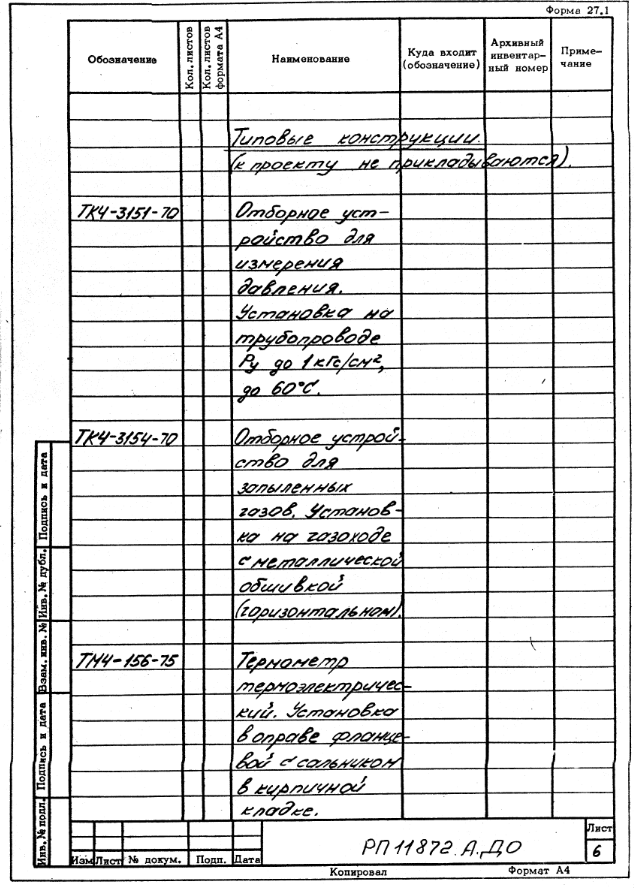 Форма 27.1
Обозначение
Кол. листов
Кол. листов формата А4
Наименование
Куда входит (обозначение)
Архивный инвентар- ный номер
Приме- чание
Типовые конструкции.
(к проекту не прикладываются).
ТК4-3151-70 Отборное уст-
ройство для
измерения
давления.
Установка на
трубопроводе
Ру до 1 кгс/см²,
до 60°С.
ТК4-3154-70 Отборное устрой-
ство для
запыленных
газов. Установ-
ка на газоходе
с металлической
обшивкой
(горизонтальном).
ТМ4-156-75 Термометр
термоэлектричес-
кий. Установка
в оправе фланце-
вой с сальником
в кирпичной
кладке.
Инв. № подл.
Подпись и дата
Взам. инв. №
Инв. № дубл.
Подпись и дата
Изм Лист № докум. Подп. Дата
РП 11872. А. ДО
Лист
6
Копировал
Формат А4